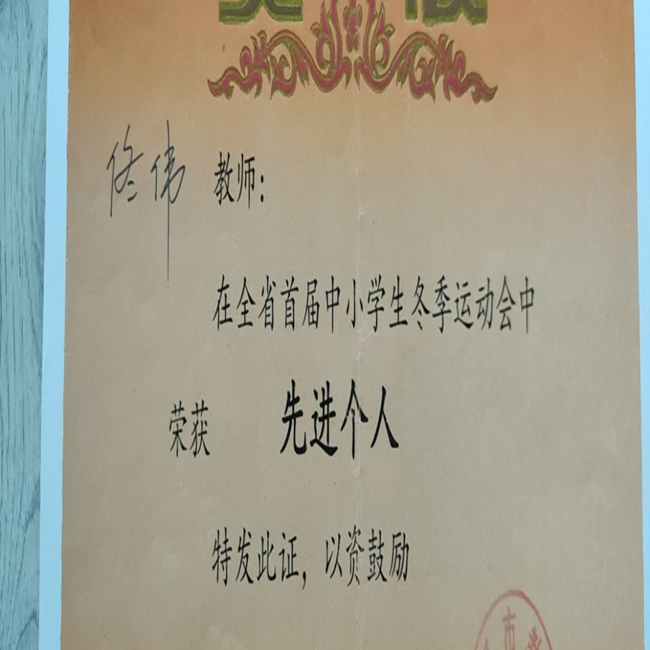 佟伟 教师:
在全省首届中小学生冬季运动会中
荣获 先进个人
特发此证，以资鼓励
市